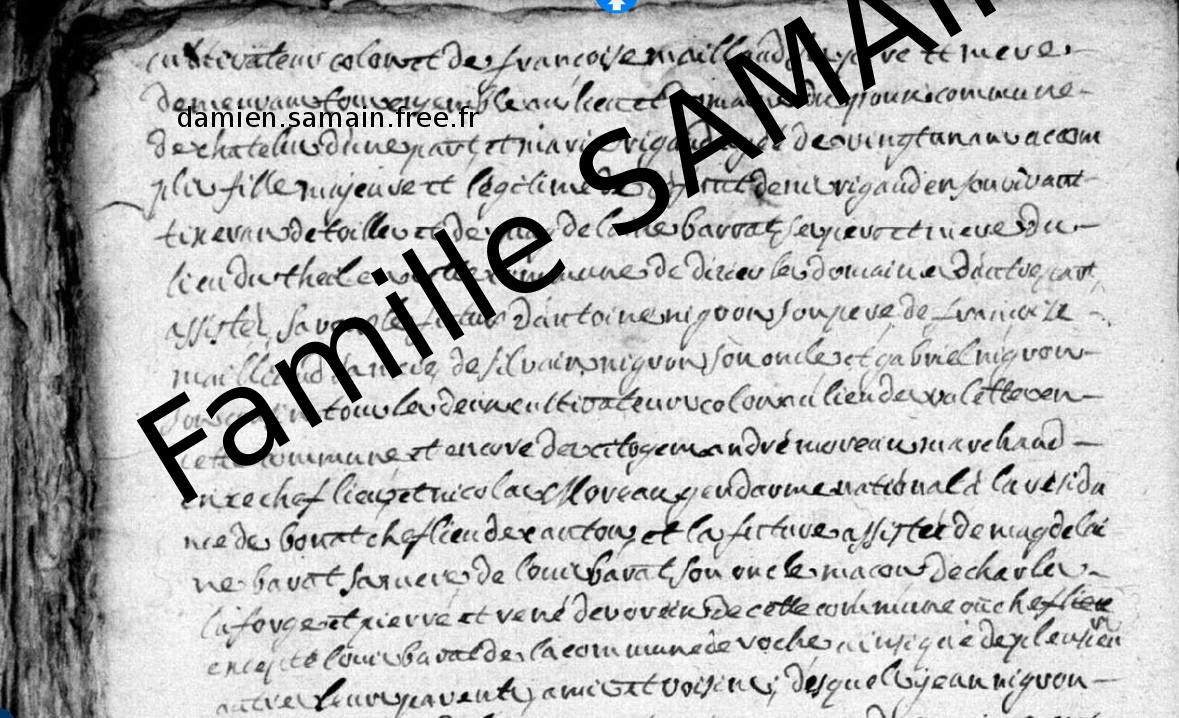 cultivateur colon et de françoise maillaud père et mere
demeurans tous ensemble au lieu et domaine du commune
damien.samain.free.fr
de chatelus d'une part, et marie rigaud agé de vingt un an accom
plis fille majeure et legitime de denis rigaud en son vivant
tixeran de toille et de magdelaine barat ses pere et mere du
lieu du theil en cette commune de domaine d'autre part,
assistés, savoir le futur d'antoine nigron son pere de françoise
maillaud sa mere, de silvain nigron son oncle et gabriel nigron
son tous les deux cultivateurs colon au lieu de valette en
cette commune et encore des citoyens andré moreau marchand
en ce chef lieu, et nicolas Moreau gendarme national à la résida
nce de bonat chef lieu de canton, et la future assistée de magdelai
ne barat sa mere de louis barat son oncle maçon de charles
laforge et pierre et rené devoreix de cette commune ou chef lieu
excepté louis barat de la commune de roche ainsi que de plusieu
autres leurs parents, amis et voisins, desquels jean nigron
Famille SAMAI